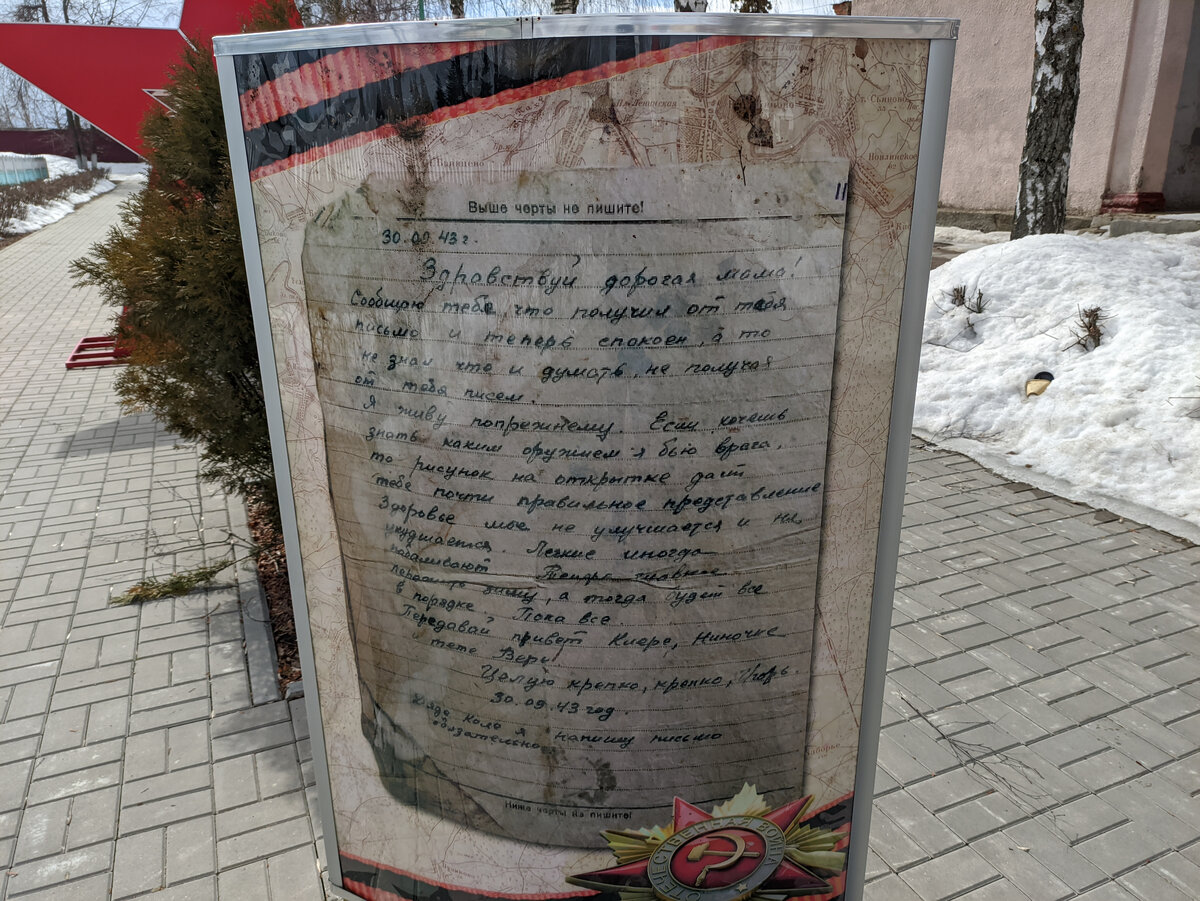 Выше черты не пишите!
11
30.09.43 г.
Здравствуй дорогая мама!
Сообщаю тебе, что получил от тебя
письмо и теперь спокоен, а то
не знал что и думать, не получая
от тебя писем.
Я живу попрежнему. Если хочешь
знать каким оружием я бью врага,
то рисунок на открытке даст
тебе почти правильное представление
Здоровье мое не улучшается и не
ухудшается Легкие иногда
побаливают Теперь главное
зиму, а тогда будет все
в порядке. Пока все.
Передавай привет Клере, Ниночке
тете Вере
Целую крепко, крепко, Игорь
30.09.43 год.
Дяде Коле я напишу письмо
обязательно
Ниже черты не пишите!
ОТЕЧЕСТВЕННАЯ ВОЙНА